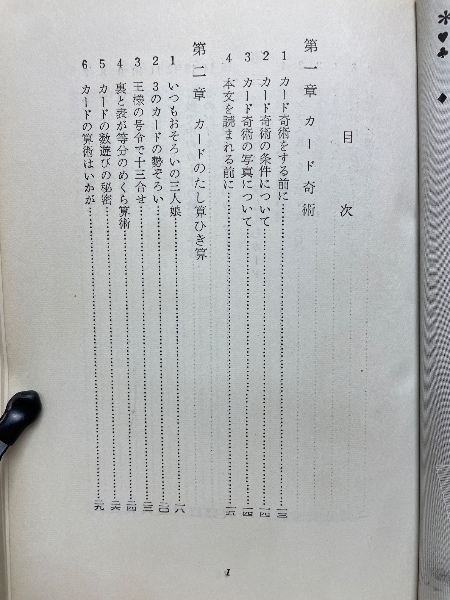 目次
第一章 カード奇術
1 カード奇術をする前に……………一三
2 カード奇術の条件について……………一四
3 カード奇術の写真について……………一四
4 本文を読まれる前に……………一五
第二章 カードのたし算ひき算
1 いつもおそろいの三人娘……………一六
2 3のカードの勢ぞろい……………二〇
3 王様の号令で十三合せ……………二二
4 裏と表が等分のめくら算術……………二四
5 カードの数遊びの秘密……………二六
6 カードの算術はいかが……………二九
1